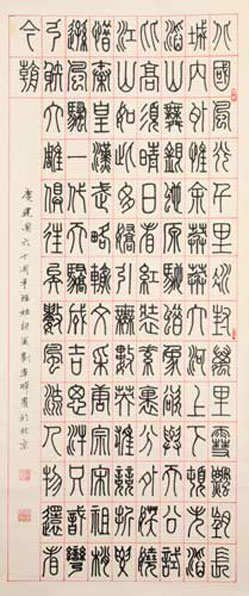 北國風光千里冰封萬里雪飄望長
城內外惟余莽莽大河上下頓失滔
滔山舞銀蛇原馳蠟象欲與天公試
比高須晴日看紅裝素裹分外妖嬈
江山如此多嬌引無數英雄競折腰
惜秦皇漢武略輸文采唐宗宋祖稍
遜風騷一代天驕成吉思汗只識彎
弓射大雕俱往矣數風流人物還看
今朝
慶建國六十周年 劉 書於北京